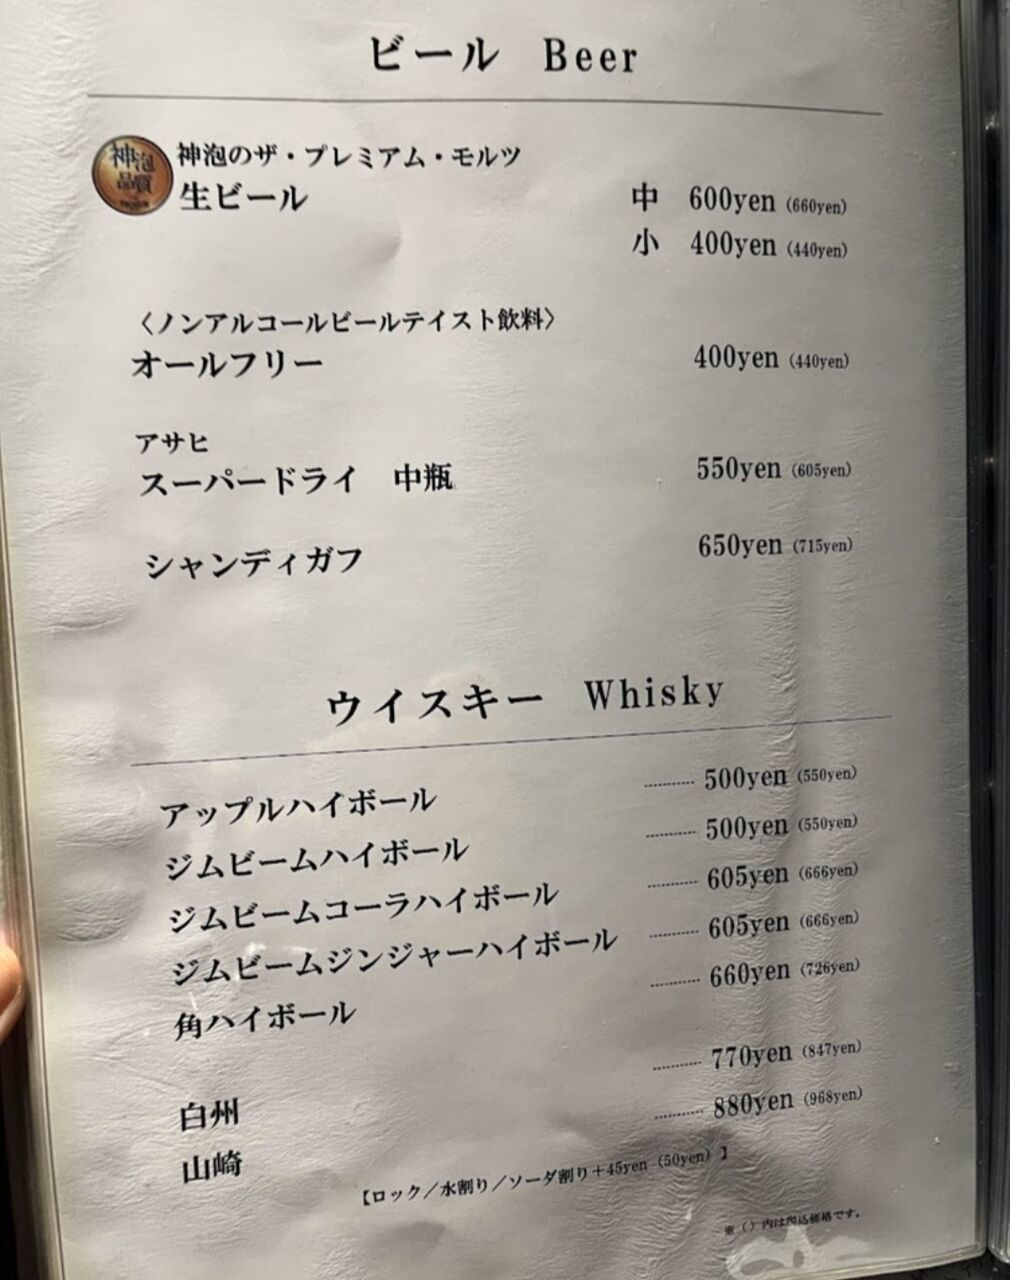 ビール Beer
神泡品質
神泡のザ・プレミアム・モルツ
生ビール 中 600yen (660yen)
小 400yen (440yen)
〈ノンアルコールビールテイスト飲料〉
オールフリー 400yen (440yen)
アサヒ
スーパードライ 中瓶 550yen (605yen)
シャンディガフ 650yen (715yen)
ウイスキー Whisky
アップルハイボール 500yen (550yen)
ジムビームハイボール 500yen (550yen)
ジムビームコーラハイボール 605yen (666yen)
ジムビームジンジャーハイボール 605yen (666yen)
角ハイボール 660yen (726yen)
白州 770yen (847yen)
山崎 880yen (968yen)
【ロック／水割り／ソーダ割り＋45yen (50yen) 】
※ ( ) 内は税込価格です。